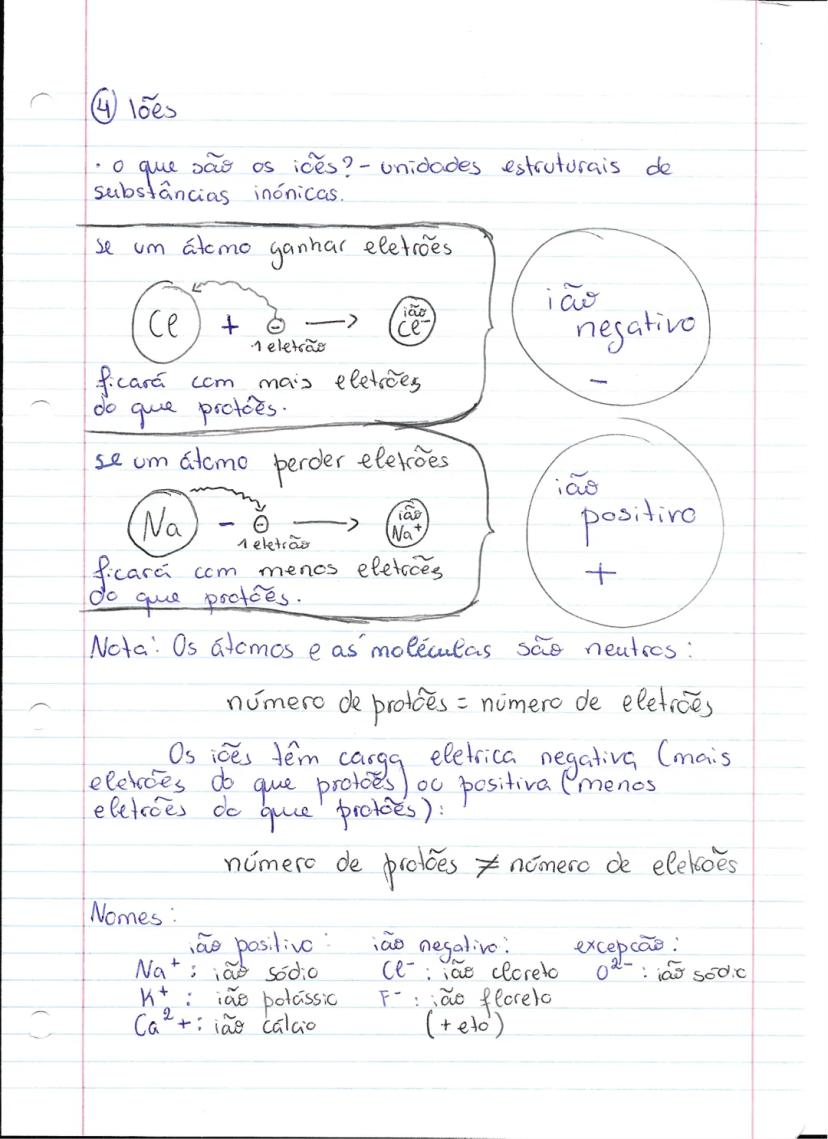 ④ Iões
· o que são os iões? - unidades estruturais de
substâncias inónicas.
se um átomo ganhar eletrões
Cl + ⊖ → ião Cl⁻
1 eletrão
ficará com mais eletrões
do que protões.
ião
negativo
-
se um átomo perder eletrões
Na - ⊖ → ião Na⁺
1 eletrão
ficará com menos eletrões
do que protões.
ião
positivo
+
Nota: Os átomos e as moléculas são neutros:
número de protões = número de eletrões
Os iões têm carga eletrica negativa (mais
eletrões do que protões) ou positiva (menos
eletrões do que protões):
número de protões ≠ número de eletrões
Nomes:
ião positivo: ião negativo: excepcão:
Na⁺: ião sódio Cl⁻: ião cloreto O²⁻: ião sódio
K⁺: ião potássio F⁻: ião floreto
Ca²+: ião cálcio (+ eto)